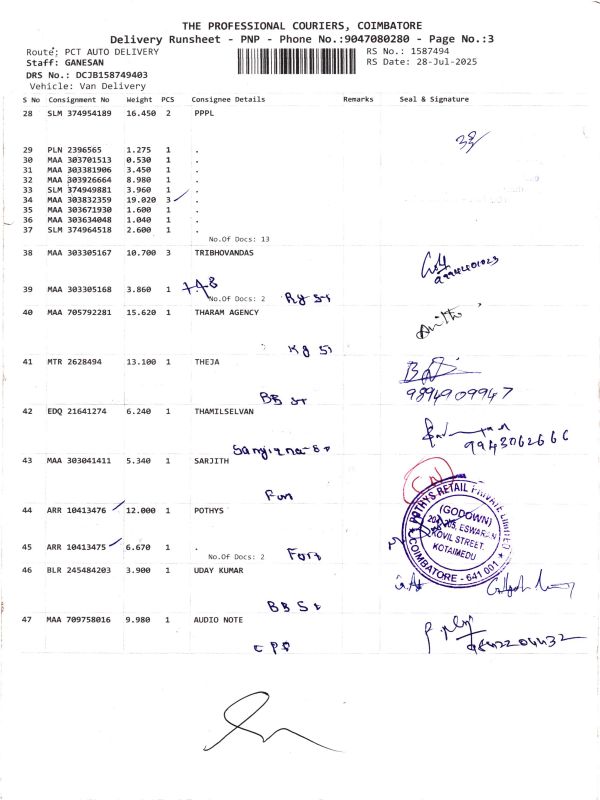 THE PROFESSIONAL COURIERS, COIMBATORE
Delivery Runsheet - PNP - Phone No.:9047080280 - Page No.:3
Route: PCT AUTO DELIVERY
RS No.: 1587494
Staff: GANESAN
RS Date: 28-Jul-2025
DRS No.: DCJB158749403
Vehicle: Van Delivery
S No Consignment No Weight PCS Consignee Details Remarks Seal & Signature
28 SLM 374954189 16.450 2 PPPL
29 PLN 2396565 1.275 1 .
30 MAA 303701513 0.530 1 .
31 MAA 303381906 3.450 1 .
32 MAA 303926664 8.980 1 .
33 SLM 374949881 3.960 1 .
34 MAA 303832359 19.020 3 .
35 MAA 303671930 1.600 1 .
36 MAA 303634048 1.040 1 .
37 SLM 374964518 2.600 1 .
No.Of Docs: 13
38 MAA 303305167 10.700 3 TRIBHOVANDAS
39 MAA 303305168 3.860 1
No.Of Docs: 2 Rg St
40 MAA 705792281 15.620 1 THARAM AGENCY
Kg St
41 MTR 2628494 13.100 1 THEJA
BB St
9894909947
42 EDQ 21641274 6.240 1 THAMILSELVAN
9943062666
43 MAA 303041411 5.340 1 SARJITH
44 ARR 10413476 12.000 1 POTHYS
POTHYS RETAIL PRIVATE LIMITED
(GODOWN)
ESWARAN
KOVIL STREET,
KOTAIMEDU
COIMBATORE - 641 001
45 ARR 10413475 6.670 1 .
No.Of Docs: 2 Fort
46 BLR 245484203 3.900 1 UDAY KUMAR
BB St
47 MAA 709758016 9.980 1 AUDIO NOTE
9842204432